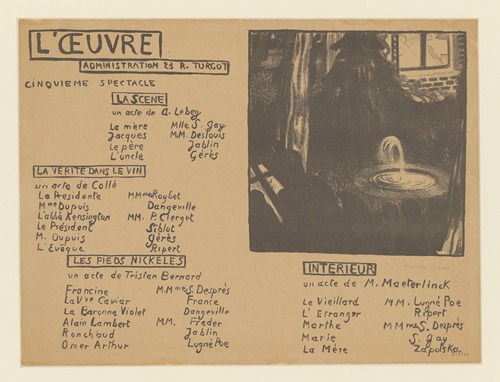 L'ŒUVRE
ADMINISTRATION 23 R. TURGOT
CINQUIEME SPECTACLE
LA SCENE
un acte de A. Lebey
La mère Mlle S. Gay
Jacques MM. Deslouis
Le père Jablin
L'oncle Gérès
LA VERITE DANS LE VIN
un acte de Collé
La Presidente MMmes Roybet
Mme Dupuis Dangeville
L'abbé Kensington MM. P. Clerget
Le Président Siblot
M. Dupuis Gérès
L'Evêque Ripert
LES PIEDS NICKELES
un acte de Tristan Bernard
Francine M.Mmes S. Després
La Vve Caviar France
La Baronne Violet Dangeville
Alain Lambert MM. Freder
Ronchaud Jablin
Omer Arthur Lugné Poe
INTERIEUR
un acte de M. Maeterlinck
Le Vieillard MM. Lugné Poe
L'Etranger Ripert
Marthe MMmes S. Després
Marie S. Gay
La Mère Zapolska